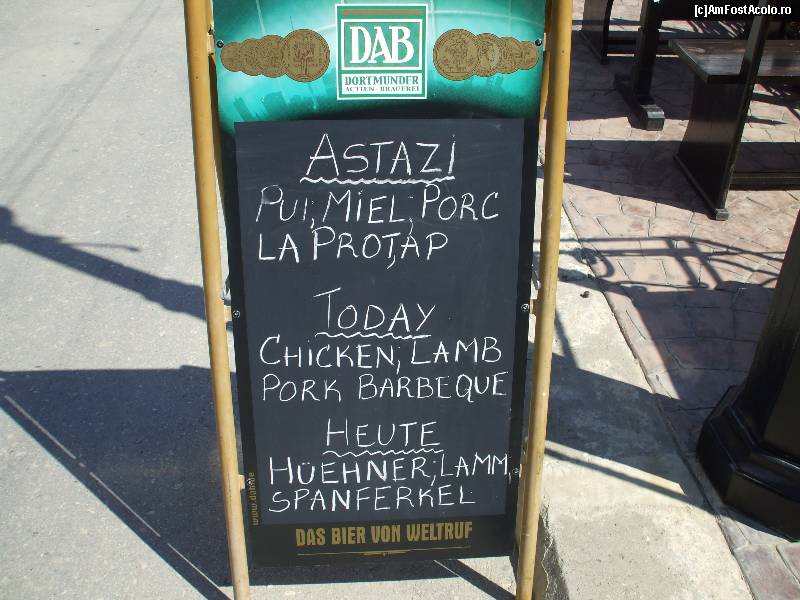 [c]AmFostAcolo.ro
DAB
DORTMUNDER
ACTIEN-BRAUEREI
ASTAZI
PUI, MIEL, PORC
LA PROȚAP
TODAY
CHICKEN, LAMB
PORK BARBEQUE
HEUTE
HÜEHNER, LAMM,
SPANFERKEL
www.dab.de
DAS BIER VON WELTRUF